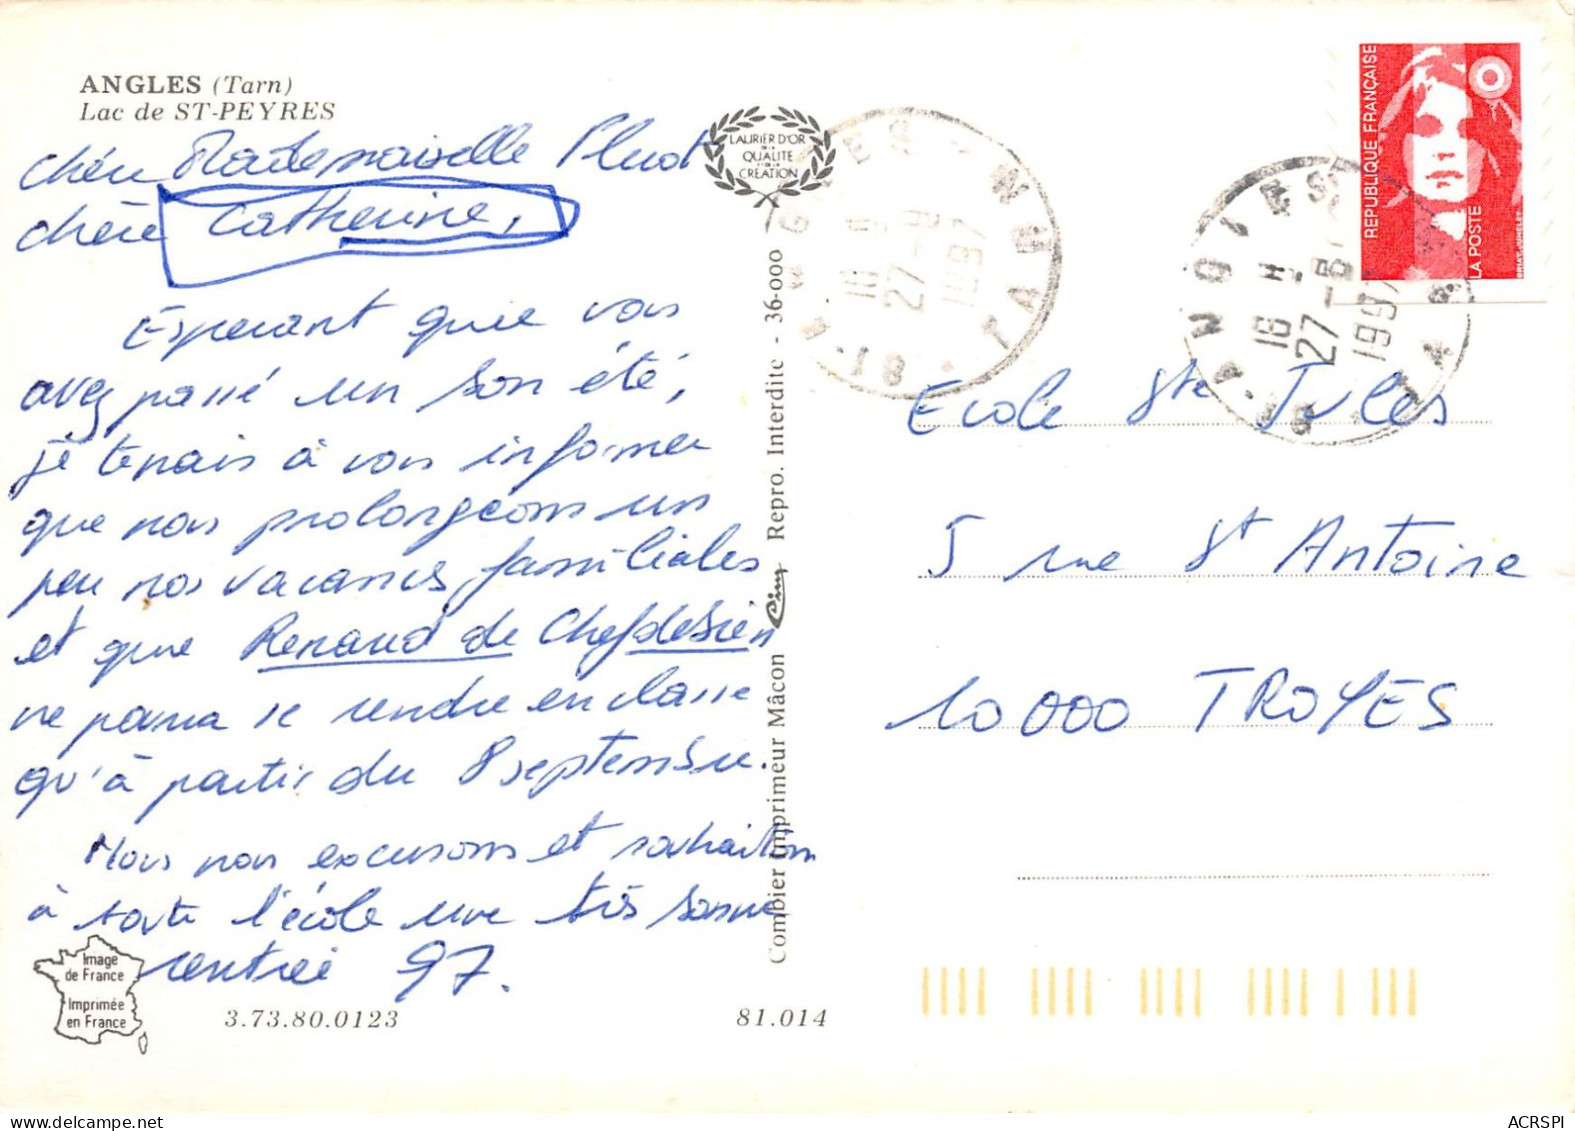 ANGLES (Tarn)
Lac de ST-PEYRES
chère Mademoiselle Pluot
chère Catherine,
Esperant que vous
avez passé un bon été,
je tenais à vous informer
que nous prolongeons un
peu nos vacances familiales
et que Renaud de Chefdebien
ne pourra se rendre en classe
qu'à partir du 8 septembre.
Nous nous excusons et souhaitons
à toute l'école une très bonne
rentrée 97.
Image
de France
Imprimée
en France
3.73.80.0123
81.014
LAURIER D'OR
DE LA
QUALITE
DE LA
CREATION
Combier Imprimeur Mâcon Cim Repro. Interdite - 36-000
ANGLES
81 - TARN
16 H
27 -8
1997
ANGLES
81 - TARN
16 H
27 -8
1997
REPUBLIQUE FRANÇAISE
LA POSTE
BRIAT. JUMELET
Ecole Ste Jules
5 rue St Antoine
10 000 TROYES
ACRSPI